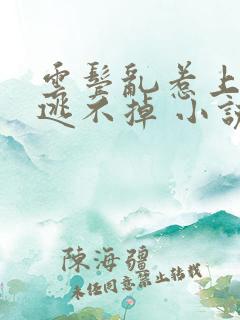 雲鬢亂惹上
逃不掉 小說
陳海疆
未经同意禁止转载